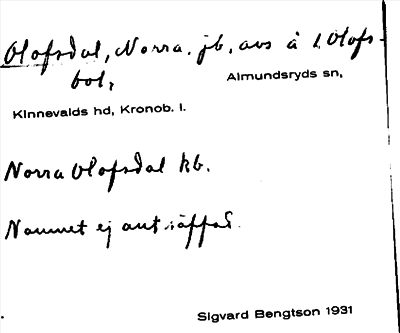 Olofsdal, Norra. jb, avs å 1 Olofs-
bol,
Almundsryds sn,
Kinnevalds hd, Kronob. l.
Norra Olofsdal kb.
Namnet ej anträffat.
Sigvard Bengtson 1931